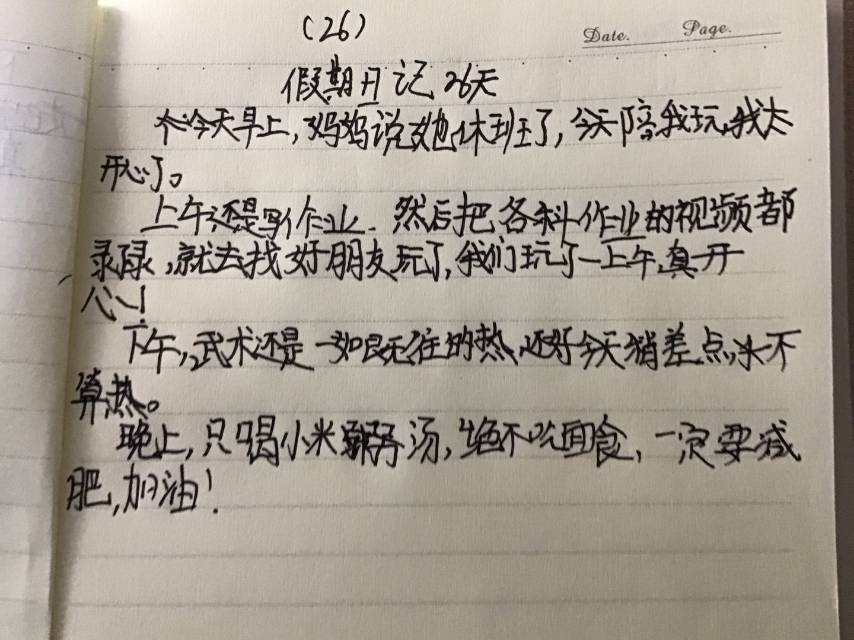 (26)
Date. Page.
假期日记 26天
今天早上,妈妈说她休班了,今天陪我玩,我太
开心了。
上午还是写作业.然后把各科作业的视频都
录碌,就去找好朋友玩了,我们玩了一上午,真开
心!
下午,武术还是一如既往的热,还好今天稍差点,不
算热。
晚上,只喝小米粥汤,绝不吃面食,一定要减
肥,加油!